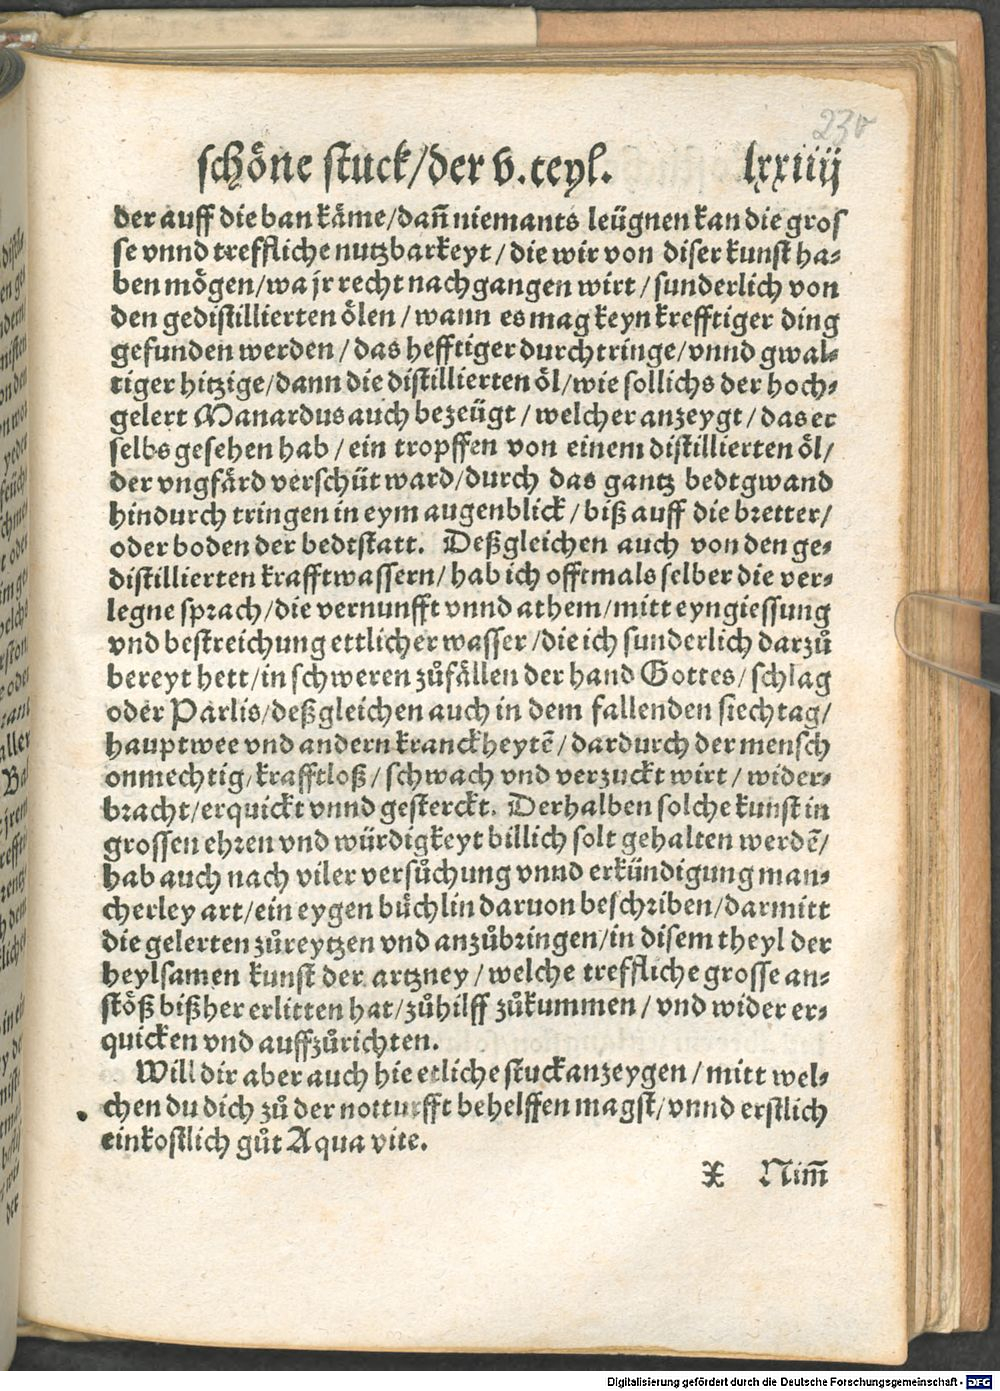 230
schöne stuck/der v.teyl. lxxiiij
der auff die ban käme/dañ niemants leügnen kan die gros
se vnnd treffliche nutzbarkeyt/die wir von diser kunst ha-
ben mögen/wa jr recht nachgangen wirt/sunderlich von
den gedistillierten ölen/wann es mag keyn krefftiger ding
gefunden werden/das hefftiger durchtringe/vnnd gwal-
tiger hitzige/dann die distillierten öl/wie sollichs der hoch-
gelert Manardus auch bezeügt/welcher anzeygt/das er
selbs gesehen hab/ein tropffen von einem distillierten öl/
der vngfärd verschüt ward/durch das gantz bedtgwand
hindurch tringen in eym augenblick/biß auff die bretter/
oder boden der bedtstatt. Deßgleichen auch von den ge-
distillierten krafftwassern/hab ich offtmals selber die ver-
legne sprach/die vernunfft vnnd athem/mitt eyngiessung
vnd bestreichung ettlicher wasser/die ich sunderlich darzů
bereyt hett/in schweren zůfällen der hand Gottes/schlag
oder Parlis/deßgleichen auch in dem fallenden siechtag/
hauptwee vnd andern kranckheytē/dardurch der mensch
onmechtig/krafftloß/schwach vnd verzuckt wirt/wider-
bracht/erquickt vnnd gesterckt. Derhalben solche kunst in
grossen ehren vnd würdigkeyt billich solt gehalten werdē/
hab auch nach viler versůchung vnnd erkündigung man-
cherley art/ein eygen büchlin daruon beschriben/darmitt
die gelerten zůreytzen vnd anzůbringen/in disem theyl der
heylsamen kunst der artzney/welche treffliche grosse an-
stöß bißher erlitten hat/zůhilff zůkummen/vnd wider er-
quicken vnd auffzůrichten.
Will dir aber auch hie etliche stuck anzeygen/mitt wel-
chen du dich zů der notturfft behelffen magst/vnnd erstlich
ein kostlich gůt Aqua vite.
X Nim̃
Digitalisierung gefördert durch die Deutsche Forschungsgemeinschaft - DFG